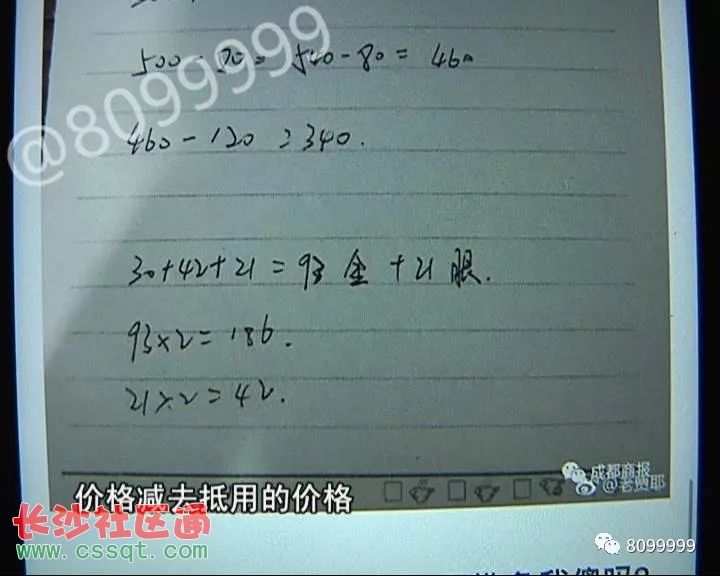 @8099999
540-80= 460
460-120=340.
30+42+21=93 全 +21 眼.
93×2=186.
21×2=42.
成都商报
@老贾耶
价格减去抵用的价格
长沙社区通
www.cssqt.com
8099999